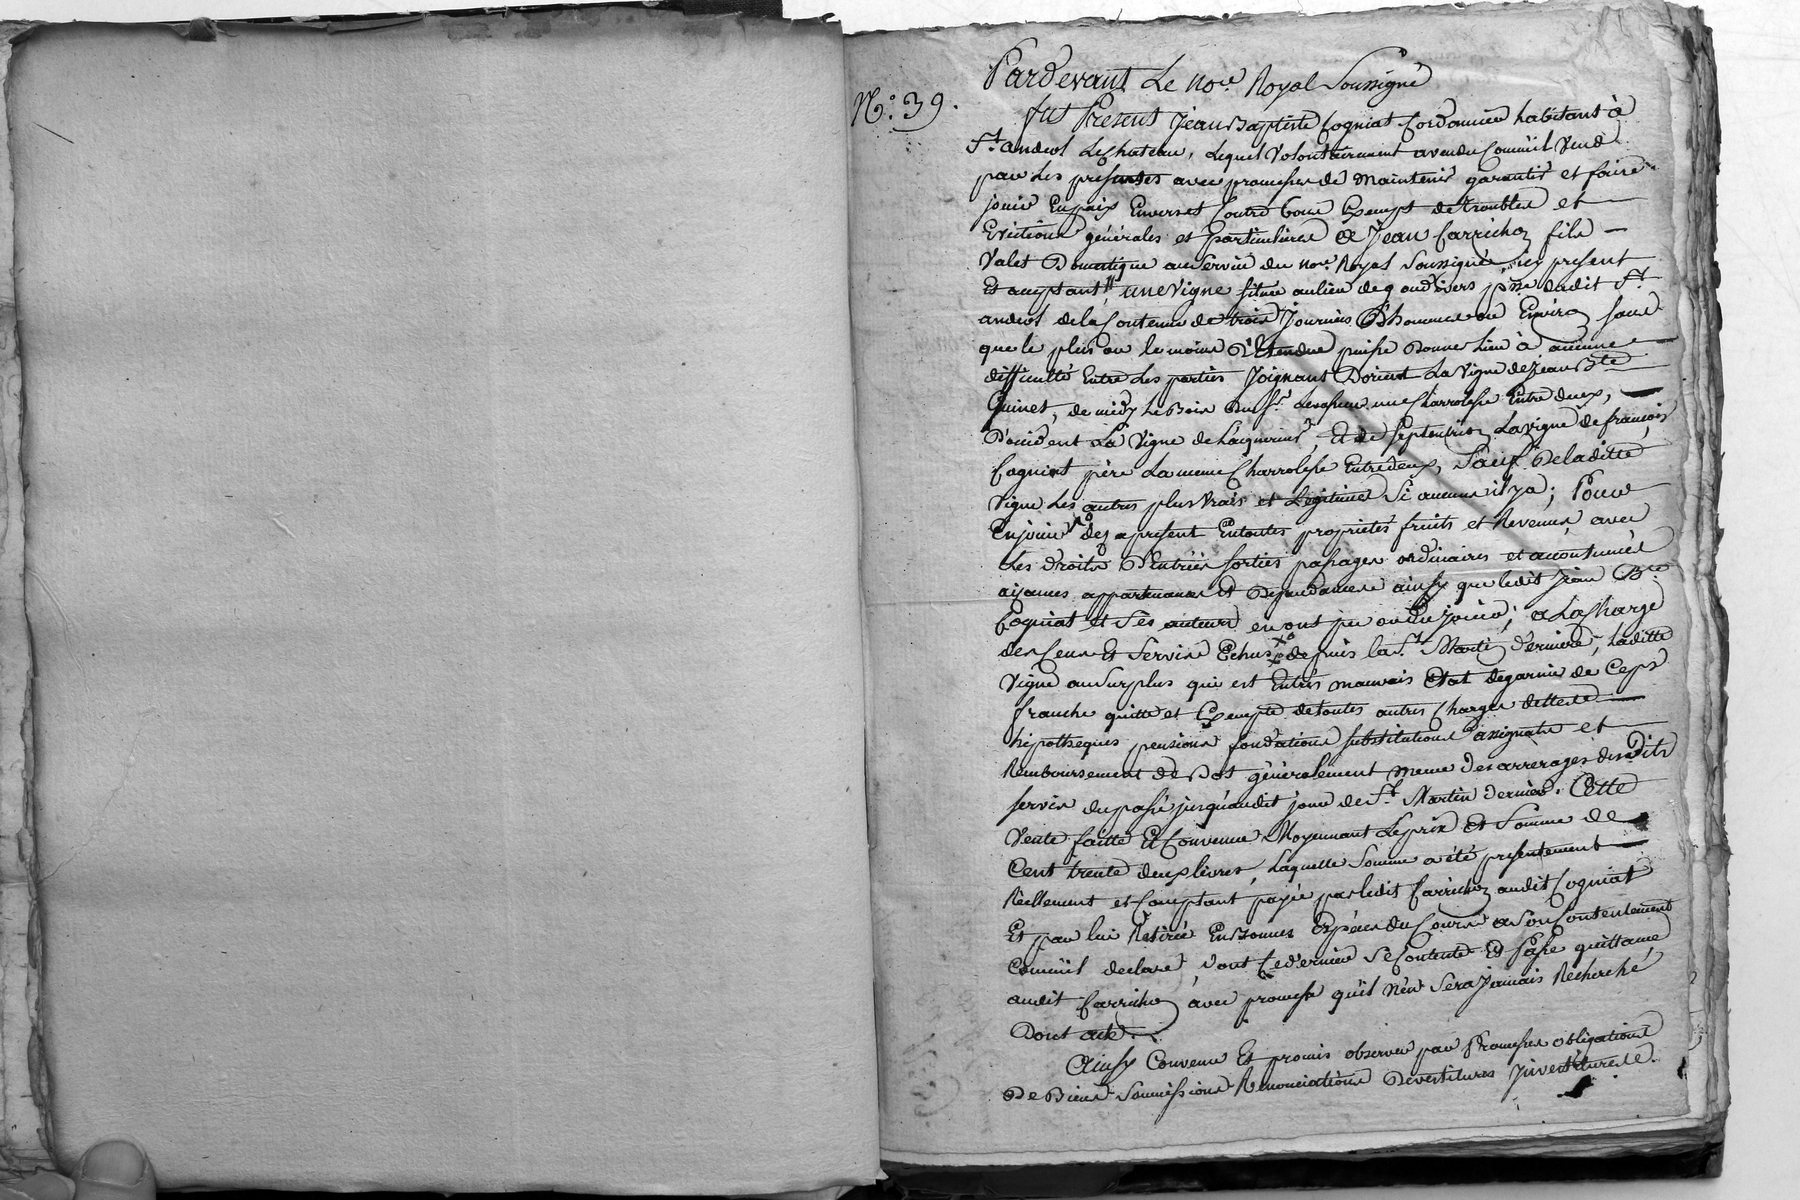 N.° 39.
Pardevant Le no.re Royal Soussigné
fut Present Jean Baptiste Cogniat Cordonnier habitant à
St. andeol Lechateau, Lequel Volontairement a vendu Comm'il Vend
par Les presentes avec promesse de Maintenir garantir et faire
jouir En paix Envers et Contre tous Exempt de troubles et
Evictions générales et particulieres à Jean Carrichon fils
Valet Domestique au Service du no.re Royal Soussigné, icy present
Et acceptant, une Vigne située au lieu de p.sse dudit St.
andeol dela Contenue de trois Journées D'hommes ou Environ sans
que le plus ou le moins D'Etendue puisse Donner Lieu à aucune
difficulté Entre Les parties Joignant D'orient La Vigne de Jean B.te
Guinet, de midy Le Bois du S.r une Charrolesse Entre deux,
D'occident La Vigne de L'acquereur, Et de septentrion La vigne de françois
Cogniat père La meme Charrolesse Entredeux, Sauf De laditte
Vigne Les autres plus Vrais et Legitimes Si aucuns il y a; Pour
En jouir des a present En toutes proprietés fruits et Revenus avec
Les droits D'Entrées sorties passages ordinaires et accoutumés
aizances appartenances Et Dependances ainsy que ledit Jean B.te
Cogniat et Ses auteurs en ont pu ou du jouir; a La Charge
des Cens Et Servis Echus depuis la S.t Martin derniere, Laditte
Vigne au Surplus qui est En très mauvais Etat degarnie de Ceps
franche quitte et Exempte de toutes autres Charges dettes
hipotheques pensions fondations substitutions assignats et
Remboursement de Dot généralement meme des arrerages desdits
servis du passé jusqu'audit jour de S.t Martin dernier. Cette
Vente faitte Et Convenue Moyennant Le prix Et Somme de
Cent trente deux Livres, Laquelle Somme a été presentement
Réellement et Comptant payée par ledit Carrichon audit Cogniat
Et par lui Retirée En Bonnes Espèces du Cours a Son Contentement
Comm'il declare, dont Ce dernier se Contente Et Passe quittance
audit Carrichon avec promesse qu'il n'en Sera Jamais Recherché
Dont acte.
Ainsy Convenu Et promis observer par Promesses obligations
De Biens Soumissions Renonciations Devestitures Investitures &.